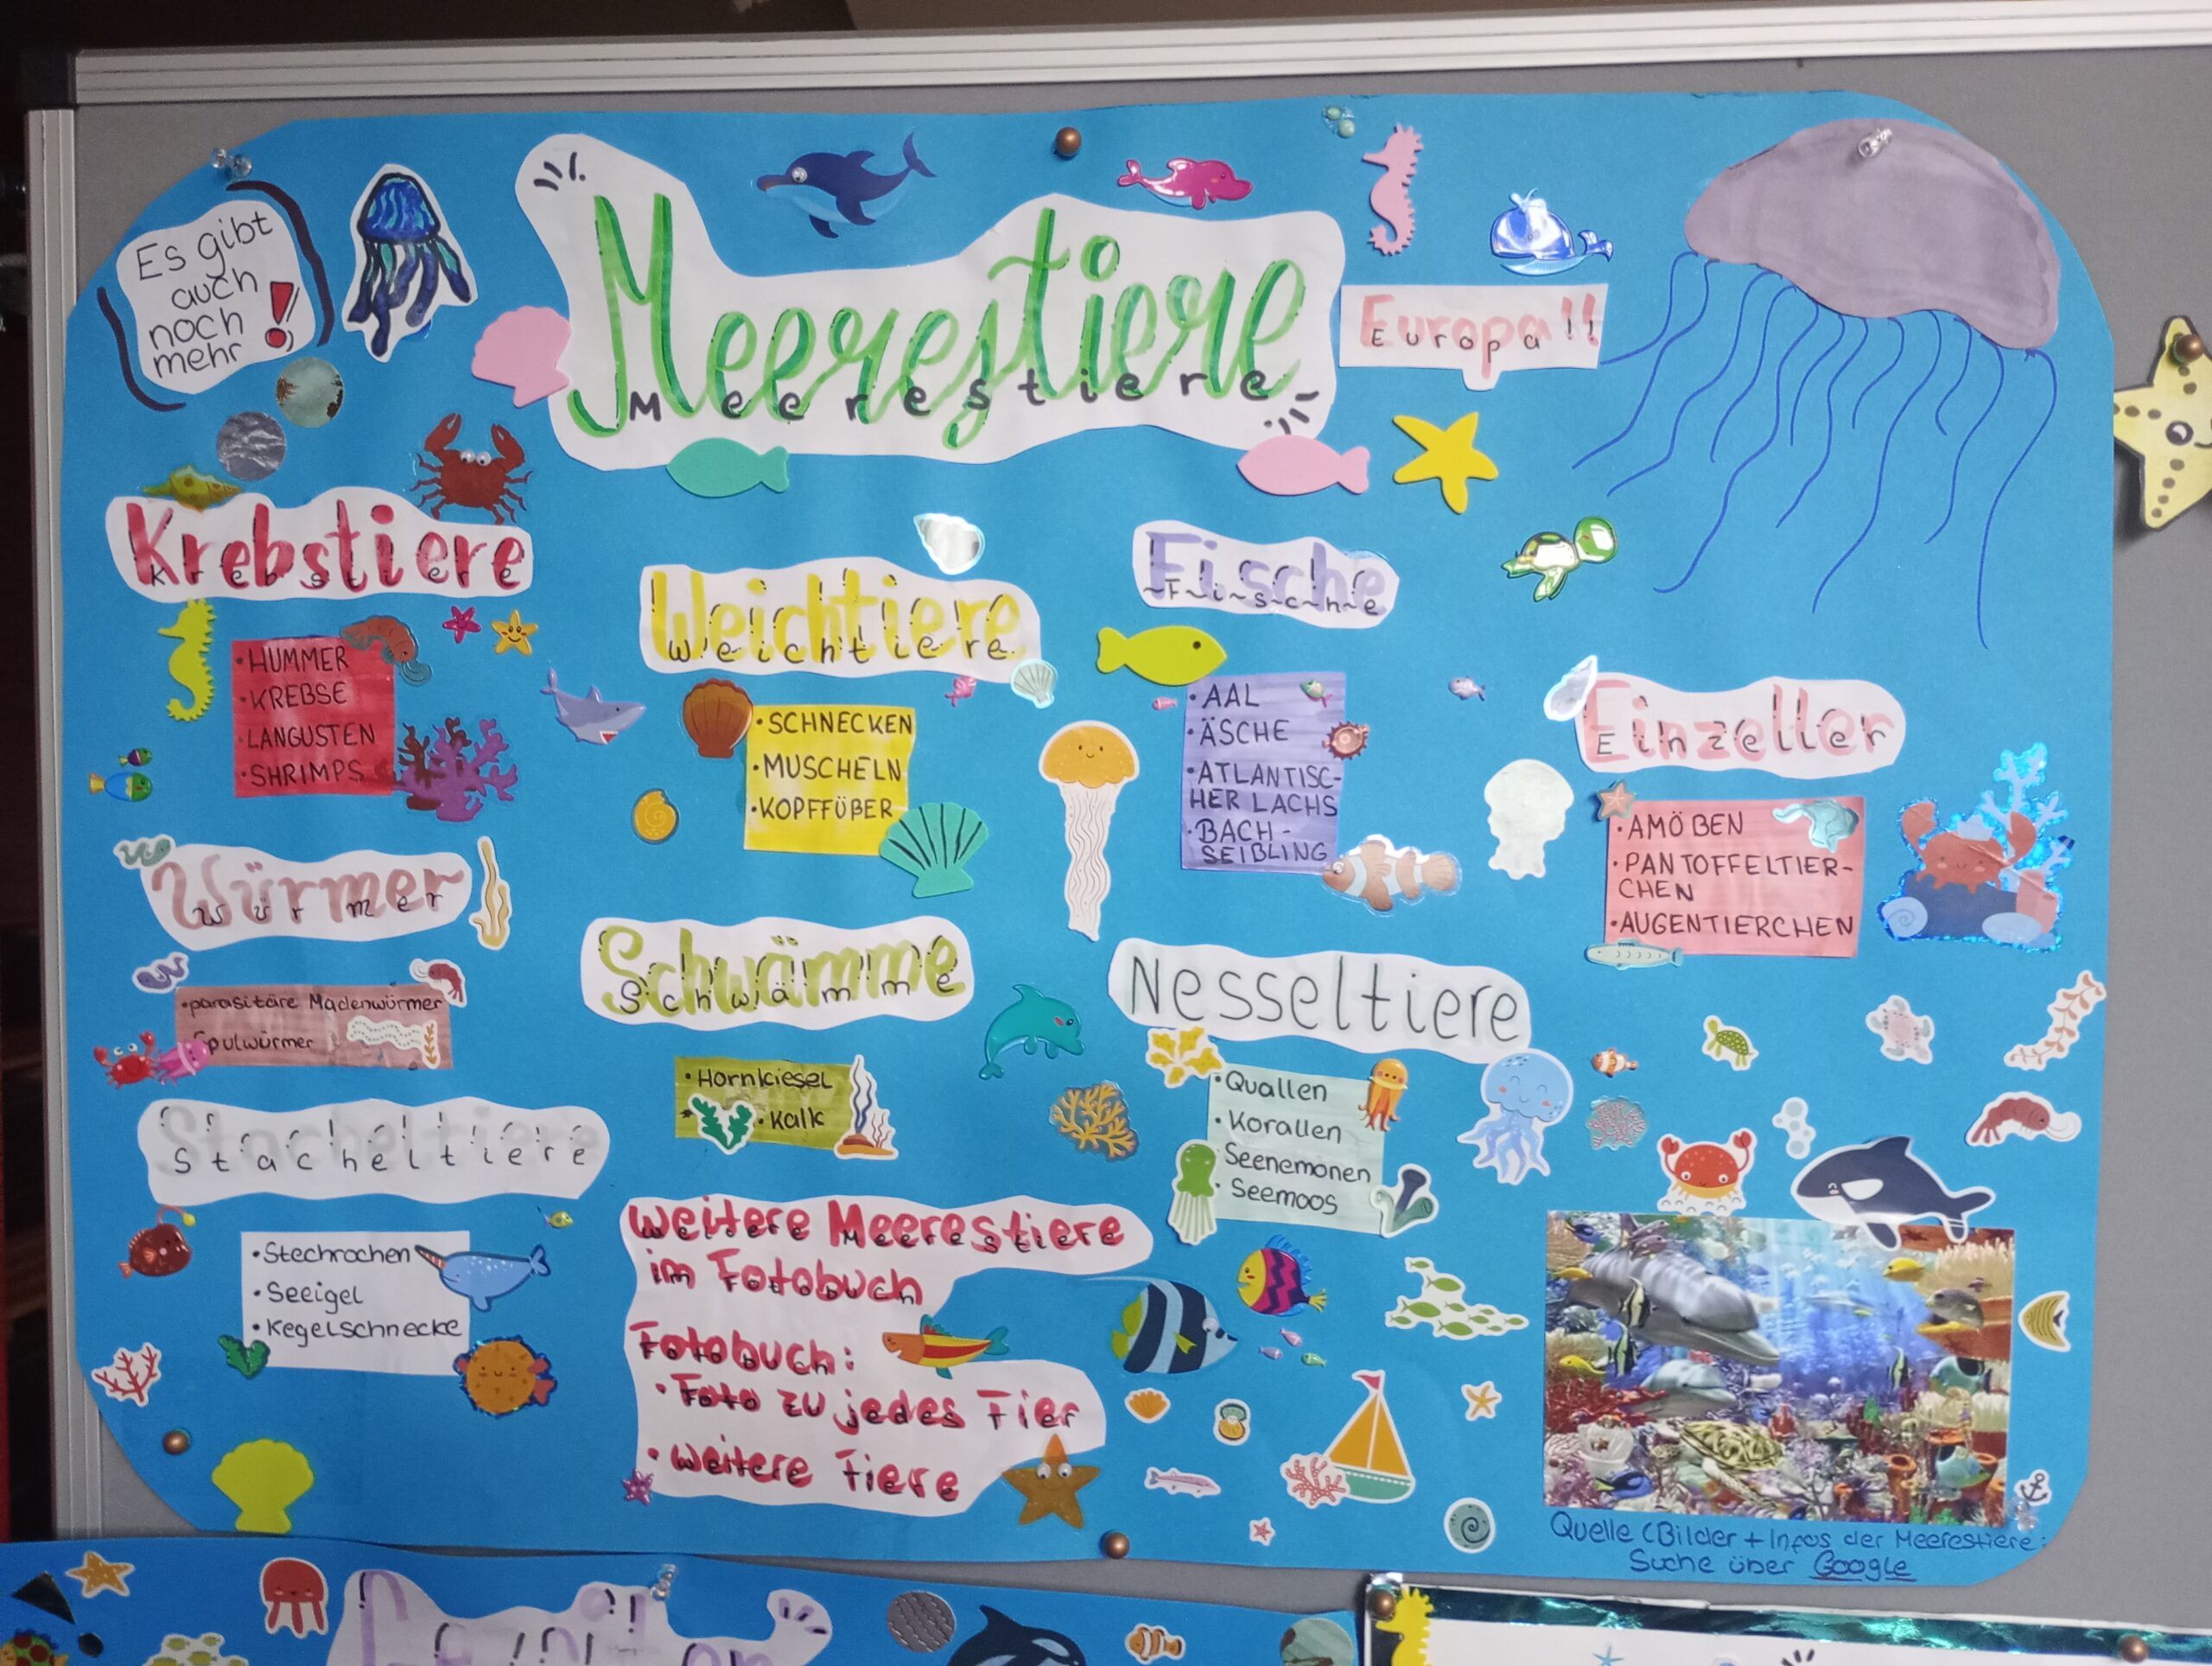 Es gibt
auch
noch
mehr !
Meerestiere
Meerestiere
Europa!!
Europa!!
Krebstiere
Krebstiere
• HUMMER
• KREBSE
• LANGUSTEN
• SHRIMPS
Weichtiere
Weichtiere
• SCHNECKEN
• MUSCHELN
• KOPFFÜßER
Fische
~F~i~s~c~h~e
• AAL
• ÄSCHE
• ATLANTISC-
HER LACHS
• BACH-
SEIBLING
Einzeller
Einzeller
• AMÖBEN
• PANTOFFELTIER-
CHEN
• AUGENTIERCHEN
Würmer
Würmer
• parasitäre Madenwürmer
Spulwürmer
Schwämme
Schwämme
• Hornkiesel
• Kalk
Nesseltiere
• Quallen
• Korallen
Seenemonen
• Seemoos
Stacheltiere
Stacheltiere
• Stechrochen
• Seeigel
• Kegelschnecke
Weitere Meerestiere
im Fotobuch
Fotobuch:
• Foto zu jedes Tier
• weitere Tiere
Quelle (Bilder + Infos der Meerestiere:
Suche über Google